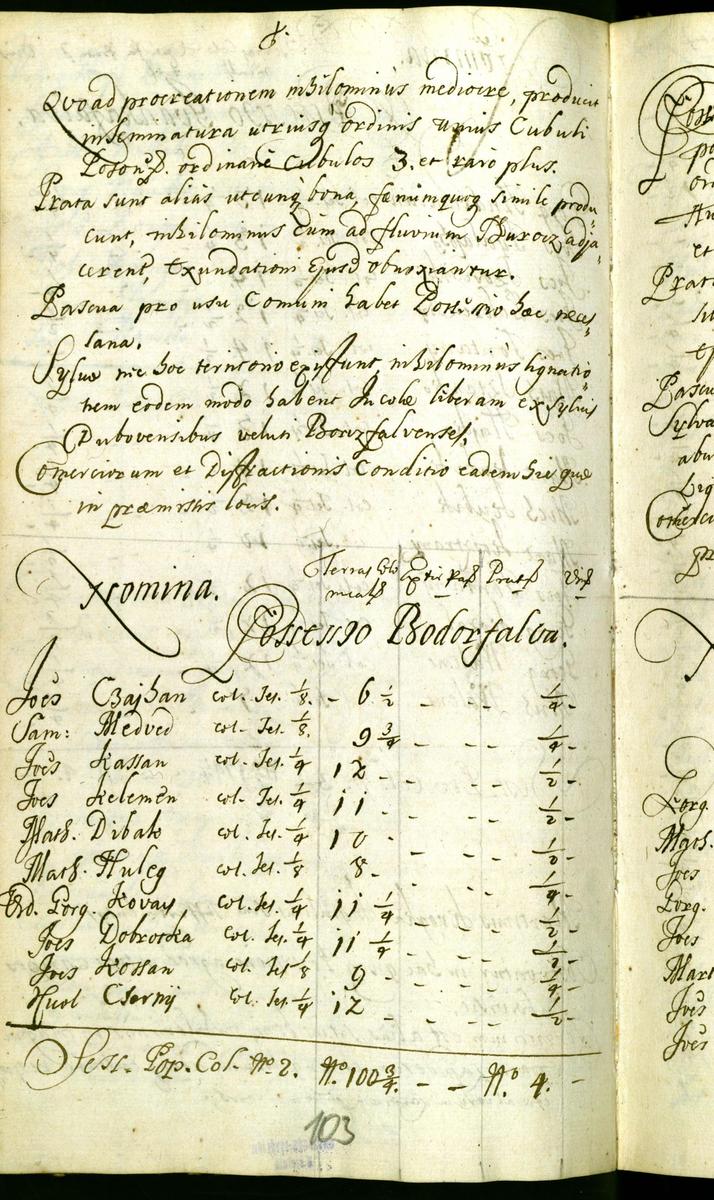 8.
Quoad procreationem nihilominus mediocre, producit
inseminatura utriusq ordinis unius Cubuli
Poson. ordinarie Cubulos 3. et raro plus.
Prata sunt alias utcunq bona, fænumquoq simile produ
cunt, nihilominus cum ad fluvium Thurocz adja
cerent, Exundationi Ejusd obnoxiantur.
Pascua pro usu Comuni habet Possessio hæc neces
saria.
Sylvæ in hoc territorio existunt, nihilominus lignatio
nem eodem modo habent Incolæ liberam ex Sylvis
Dubovensibus veluti Boczfalvenses.
Comerciorum et Distractionis Conditio eadem hic quæ
in præmissis locis.
Nomina. Terras Colo Extir Prat
nical
Possessio Bodorfalva.
Joes Czajhan col. Ses. 1/8. - 6 1/2 - - - 1/4 -
Sam: Medved col. Ses. 1/8. 9 3/4 - - - 1/4 -
Joes Kassan col. Ses. 1/4 12 - - - 1/2 -
Joes Kelemen col. Ses. 1/4 11 - - - 1/2 -
Math. Dibak col. Ses. 1/4 10 - - - 1/2 -
Math. Huleg col. Ses. 1/8 8 - - - 1/4 -
Vid. Georg. Kovacs col. Ses. 1/4 11 1/4 - - - 1/2 -
Joes Dobrotka col. Ses. 1/4 11 1/4 - - - 1/2 -
Joes Kossan col. Ses. 1/8 9 - - - 1/4 -
Csernij col. Ses. 1/4 12 - - - 1/2 -
Sess. Pop. Col. No 2. No 100 3/4. - - No 4. -
103
Georg.
Math.
Joes
Georg.
Joes
Mart
Joes
Joes